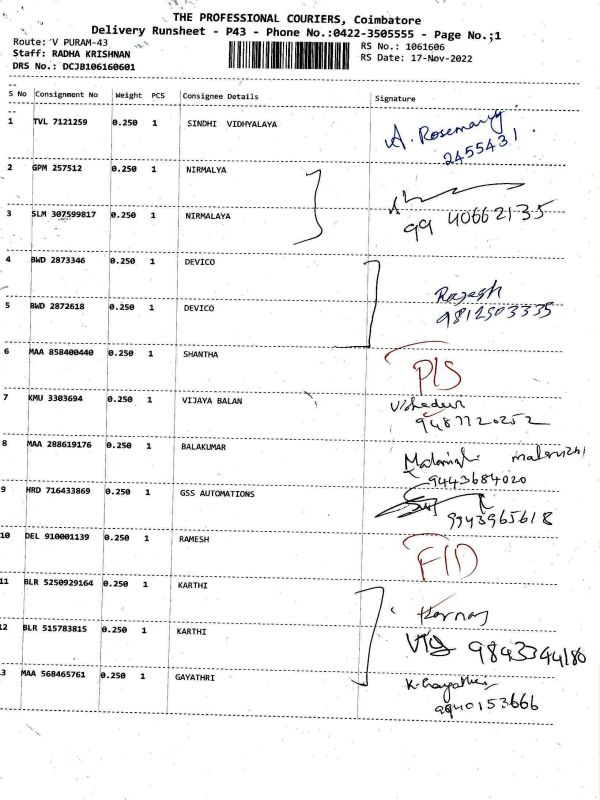 THE PROFESSIONAL COURIERS, Coimbatore
Delivery Runsheet - P43 - Phone No.:0422-3505555 - Page No.;1
Route: V PURAM-43
Staff: RADHA KRISHNAN
DRS No.: DCJB106160601
RS No.: 1061606
RS Date: 17-Nov-2022
S No Consignment No Weight PCS Consignee Details Signature
1 TVL 7121259 0.250 1 SINDHI VIDHYALAYA A. Rosemary
2455431
2 GPM 257512 0.250 1 NIRMALYA
3 SLM 307599817 0.250 1 NIRMALAYA 99 40662135
4 BWD 2873346 0.250 1 DEVICO Rajesh
5 BWD 2872618 0.250 1 DEVICO 9812503335
6 MAA 858400440 0.250 1 SHANTHA P/S
7 KMU 3303694 0.250 1 VIJAYA BALAN
9487720252
8 MAA 288619176 0.250 1 BALAKUMAR
9443684020
9 HRD 716433869 0.250 1 GSS AUTOMATIONS
9943965618
10 DEL 910001139 0.250 1 RAMESH F/D
11 BLR 5250929164 0.250 1 KARTHI
12 BLR 515783815 0.250 1 KARTHI 9843344180
3 MAA 568465761 0.250 1 GAYATHRI K. Gayathri
9940153666